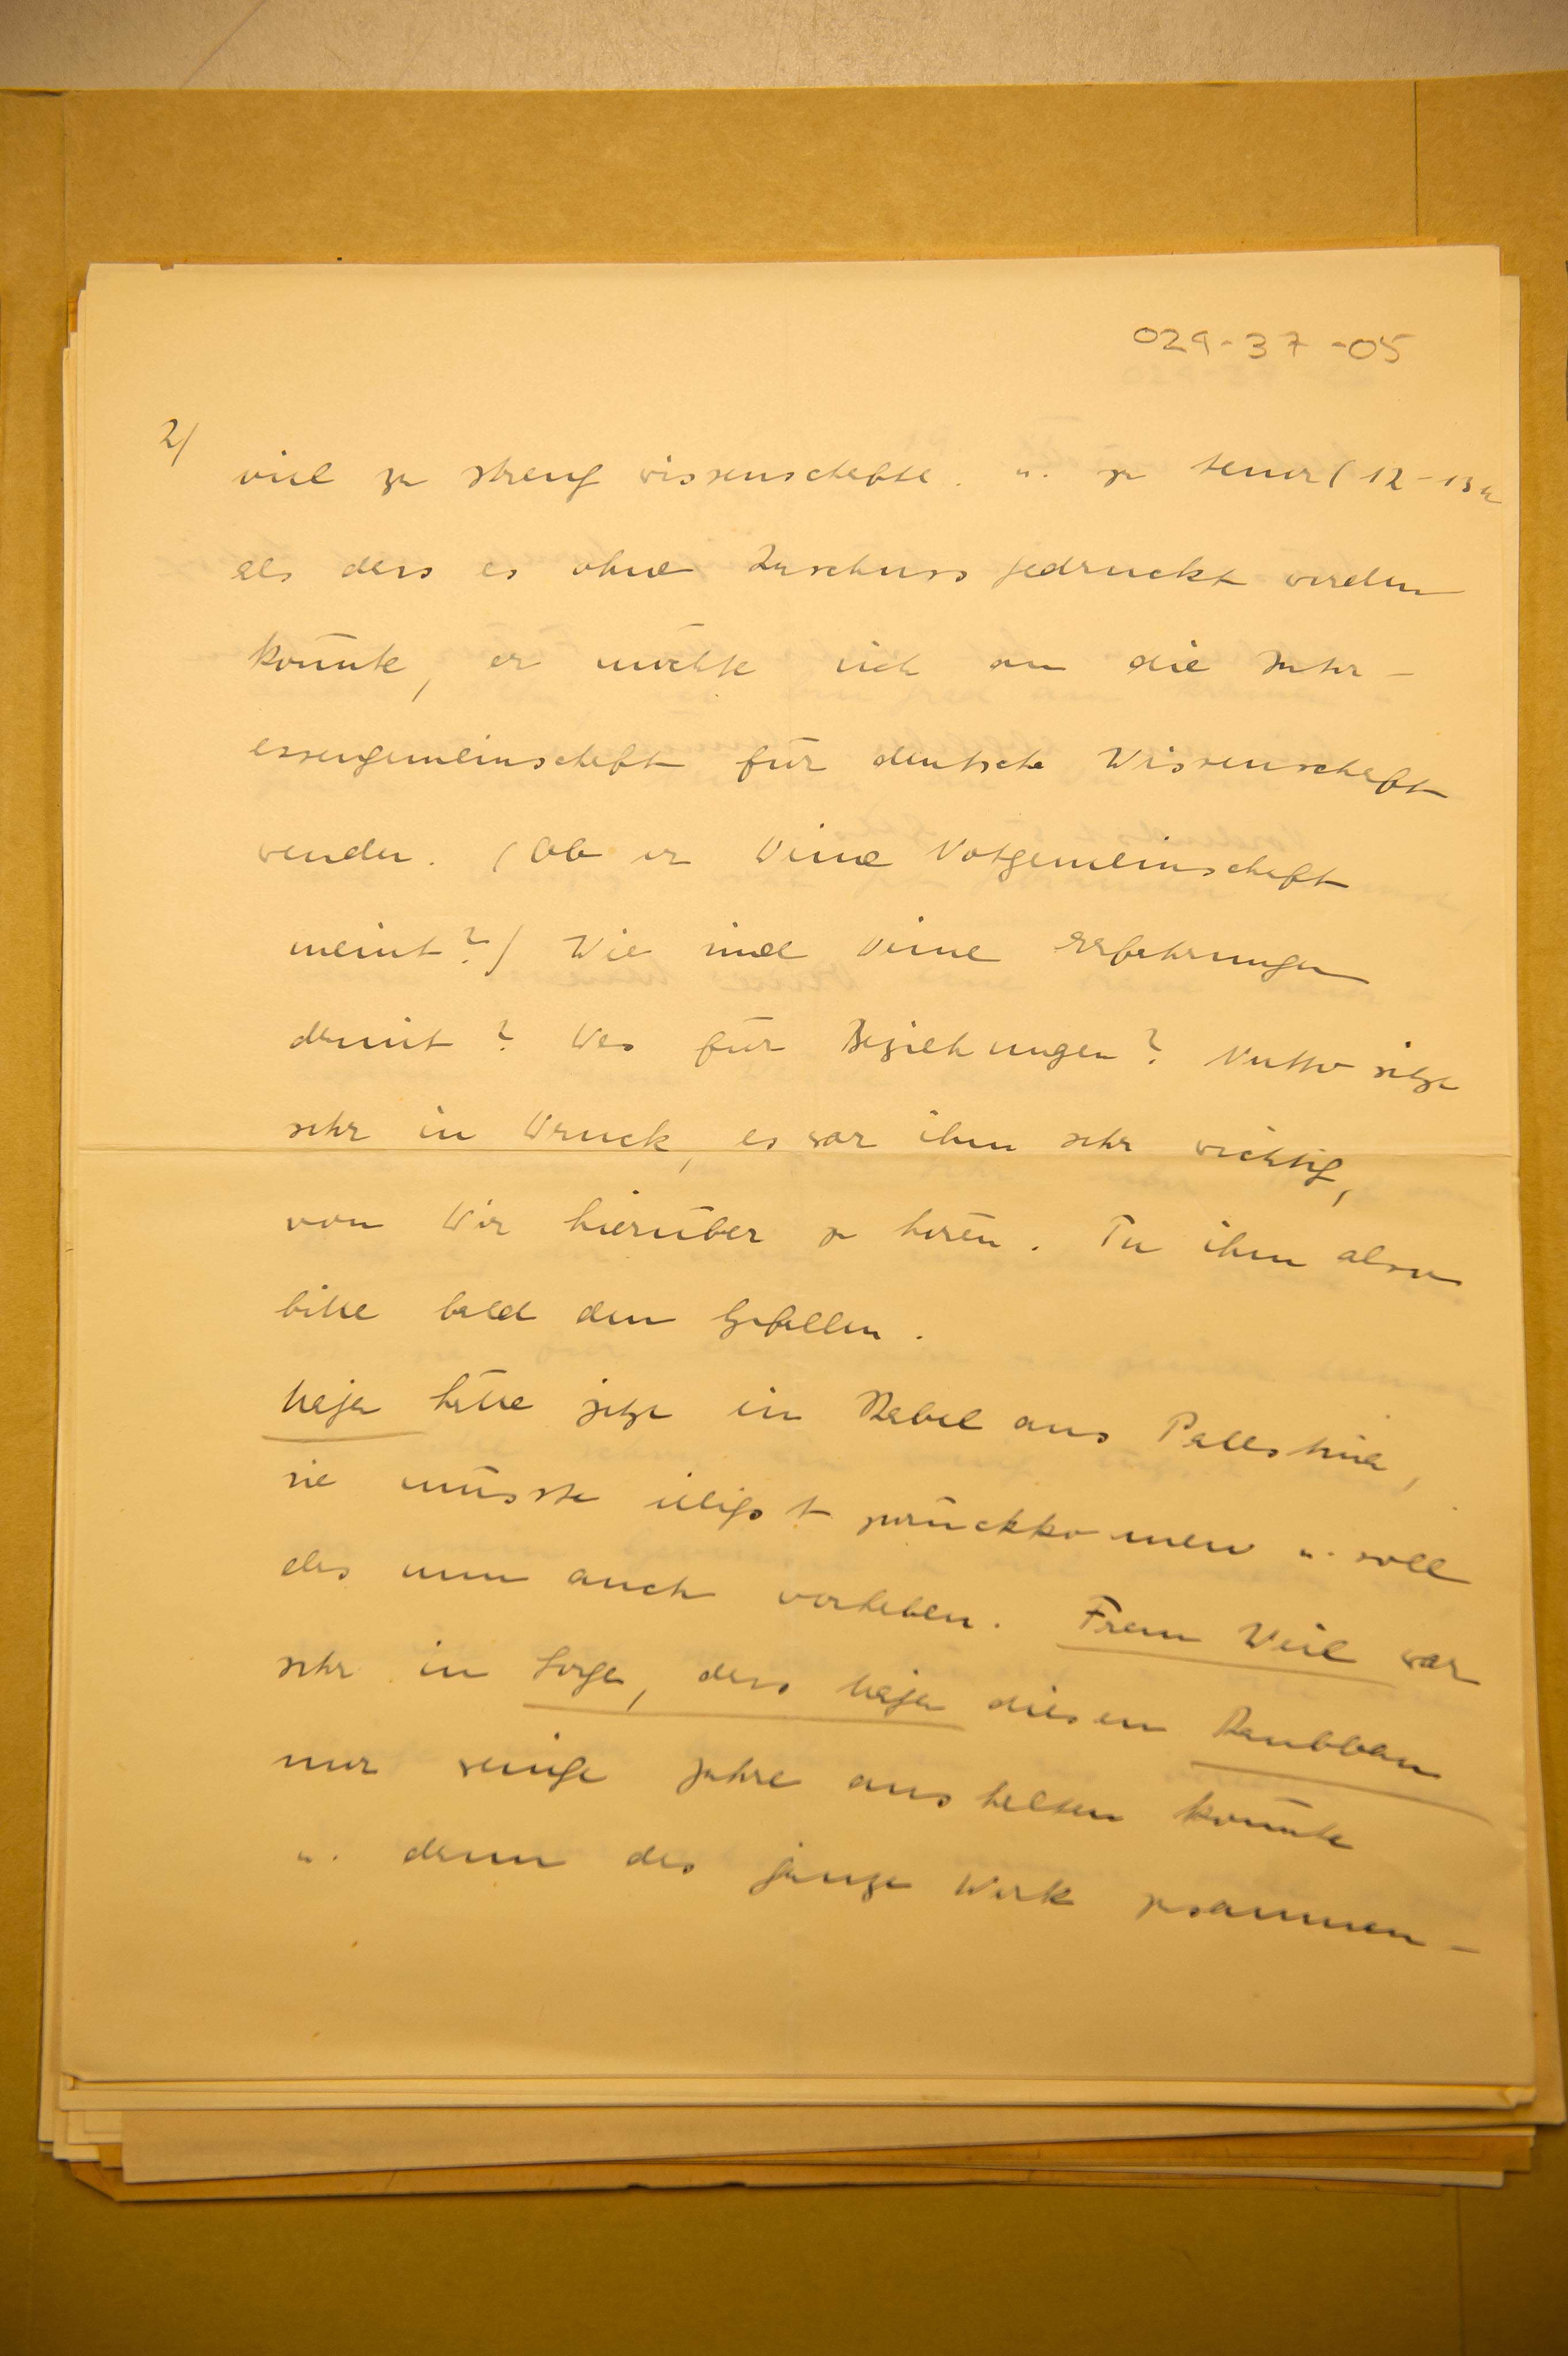 029-37-05
2/
viel zu streng wissenschaftl. u. zu teuer (12-13
als dass es ohne Zuschuss gedruckt werden
könnte, er möchte sich an die Inter-
essengemeinschaft für deutsche Wissenschaft
wenden. (Ob er Deine Notgemeinschaft
meint?) Wie sind Deine Erfahrungen
damit? Was für Beziehungen? sitzt
sehr in Druck, es war ihm sehr wichtig,
von Dir hierüber zu hören. Tu ihm also
bitte bald den Gefallen.
Maja hätte jetzt ein Kabel aus Palestina,
sie müsste eiligst zurückkommen u. soll
das nun auch vorhaben. Frau Weil war
sehr in Sorge, dass Maja diesen Raubbau
nur wenige Jahre aushalten könnte
u. dann das ganze Werk zusammen-